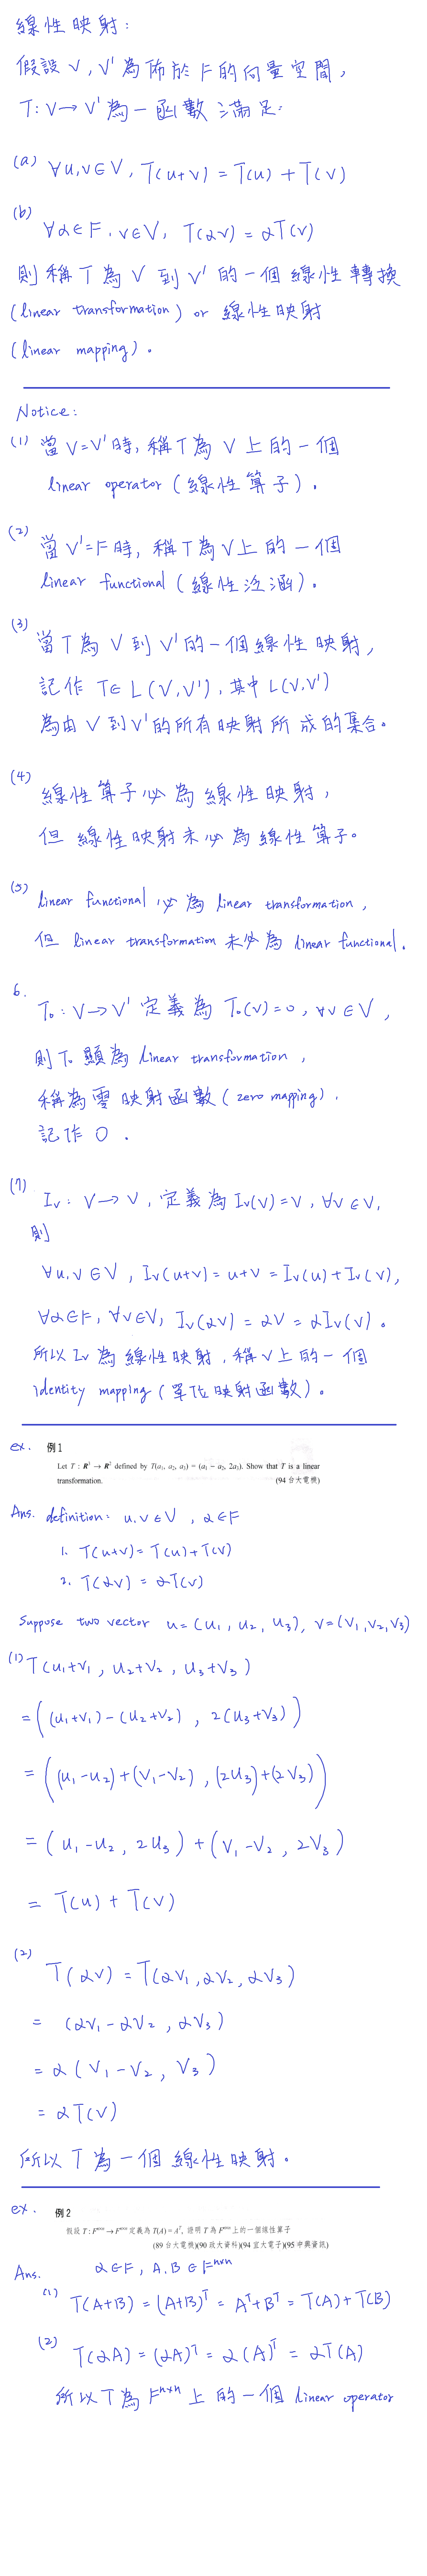 線性映射:
假設 V, V' 為佈於 F 的向量空間,
T: V→V' 為一函數滿足:
(a) ∀u,v∈V, T(u+v) = T(u) + T(v)
(b) ∀α∈F, v∈V, T(αv) = αT(v)
則稱 T 為 V 到 V' 的一個線性轉換
(linear transformation) or 線性映射
(linear mapping)。
Notice:
(1) 當 V=V' 時, 稱 T 為 V 上的一個
linear operator (線性算子)。
(2) 當 V'=F 時, 稱 T 為 V 上的一個
linear functional (線性泛涵)。
(3) 當 T 為 V 到 V' 的一個線性映射,
記作 T∈ L(V,V'), 其中 L(V,V')
為由 V 到 V' 的所有映射所成的集合。
(4) 線性算子必為線性映射,
但 線性映射未必為線性算子。
(5) linear functional 必為 linear transformation,
但 linear transformation 未必為 linear functional.
6. T₀: V→V' 定義為 T₀(v)=0, ∀v∈V,
則 T₀ 顯為 linear transformation,
稱為零映射函數 (zero mapping),
記作 O.
(7) Iv: V→V, 定義為 Iv(v)=v, ∀v∈V,
則
∀u,v∈V, Iv(u+v) = u+v = Iv(u)+Iv(v),
∀α∈F, ∀v∈V, Iv(αv) = αv = αIv(v)。
所以 Iv 為線性映射, 稱 V 上的一個
identity mapping (單位映射函數)。
ex. 例1
Let T : R³ → R² defined by T(a₁, a₂, a₃) = (a₁ − a₂, 2a₃). Show that T is a linear
transformation. (94 台大電機)
Ans. definition: u,v∈V, α∈F
1. T(u+v) = T(u)+T(v)
2. T(αv) = αT(v)
Suppose two vector u=(u₁, u₂, u₃), v=(v₁,v₂,v₃)
(1) T(u₁+v₁, u₂+v₂, u₃+v₃)
= ((u₁+v₁)-(u₂+v₂), 2(u₃+v₃))
= ((u₁-u₂)+(v₁-v₂), (2u₃)+(2v₃))
= (u₁-u₂, 2u₃) + (v₁-v₂, 2v₃)
= T(u) + T(v)
(2) T(αv) = T(αv₁,αv₂,αv₃)
= (αv₁-αv₂, αv₃)
= α(v₁-v₂, v₃)
= αT(v)
所以 T 為一個線性映射。
ex. 例2
假設 T : Fⁿˣⁿ → Fⁿˣⁿ 定義為 T(A) = Aᵀ, 證明 T 為 Fⁿˣⁿ 上的一個線性算子
(89 台大電機)(90 政大資科)(94 宜大電子)(95 中興資訊)
Ans. α∈F, A,B∈Fⁿˣⁿ
(1) T(A+B) = (A+B)ᵀ = Aᵀ+Bᵀ = T(A)+T(B)
(2) T(αA) = (αA)ᵀ = α(A)ᵀ = αT(A)
所以 T 為 Fⁿˣⁿ 上的一個 linear operator